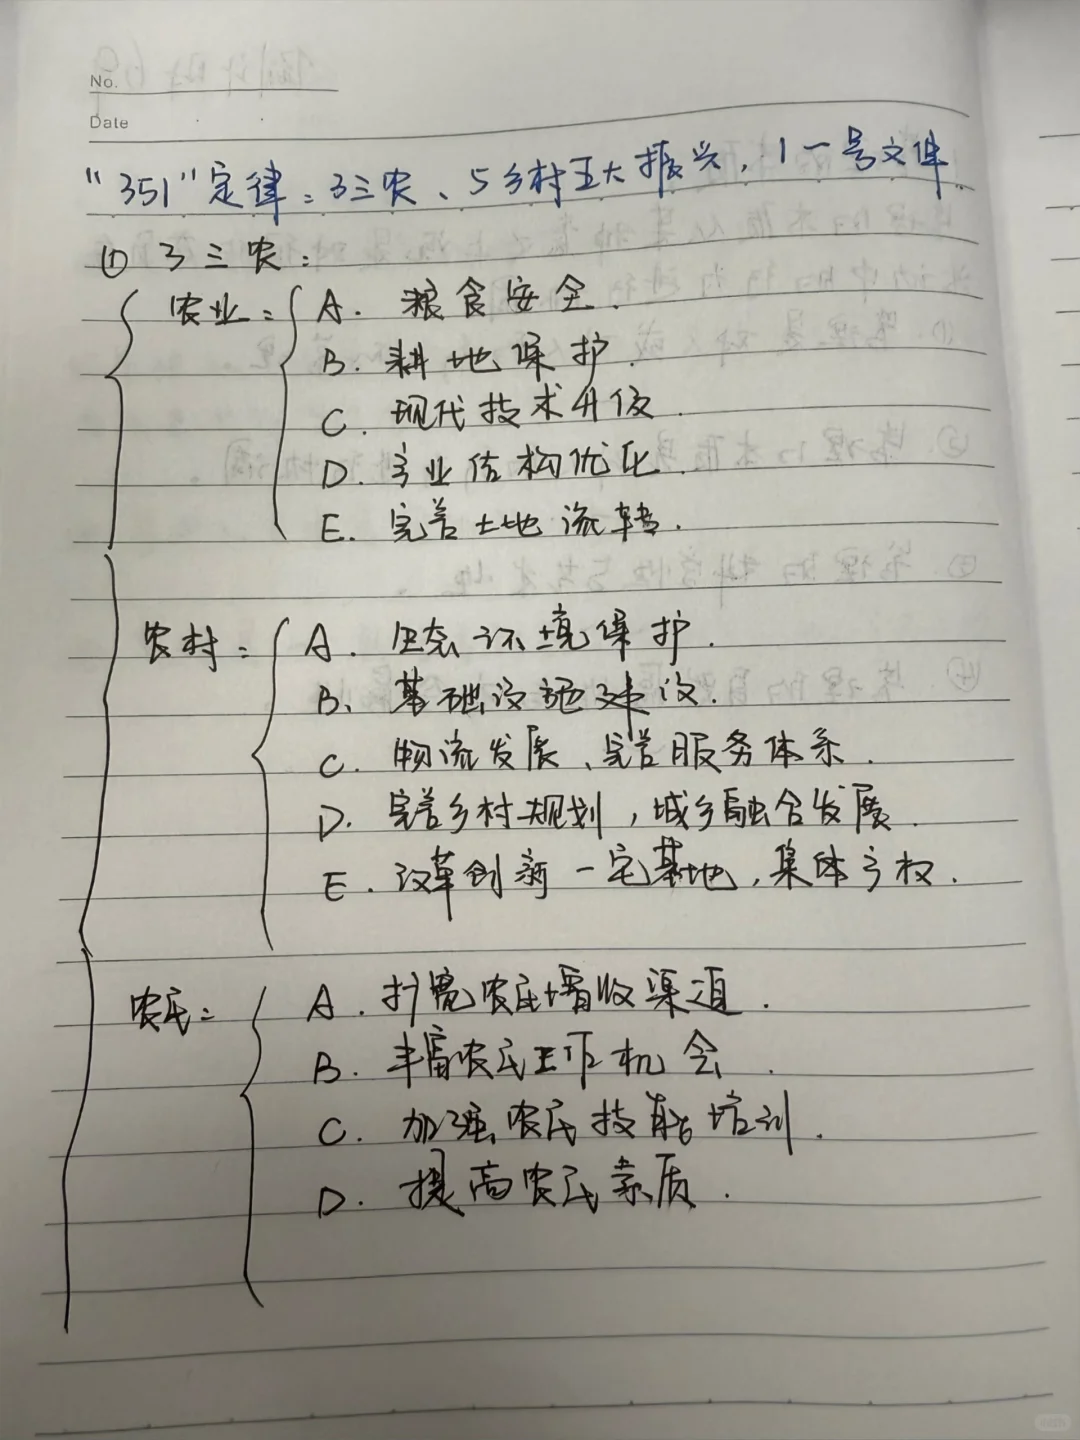 No.
Date
“351”定律：3三农、5乡村五大振兴，1一号文件.
① 3三农：
农业：A. 粮食安全.
B. 耕地保护.
C. 现代技术升级.
D. 产业结构优化.
E. 完善土地流转.
农村：A. 生态环境保护.
B、基础设施建设.
C. 物流发展、完善服务体系.
D. 完善乡村规划，城乡融合发展.
E. 改革创新－宅基地，集体产权.
农民：A. 扩宽农民增收渠道.
B. 丰富农民工作机会.
C. 加强农民技能培训.
D. 提高农民素质.